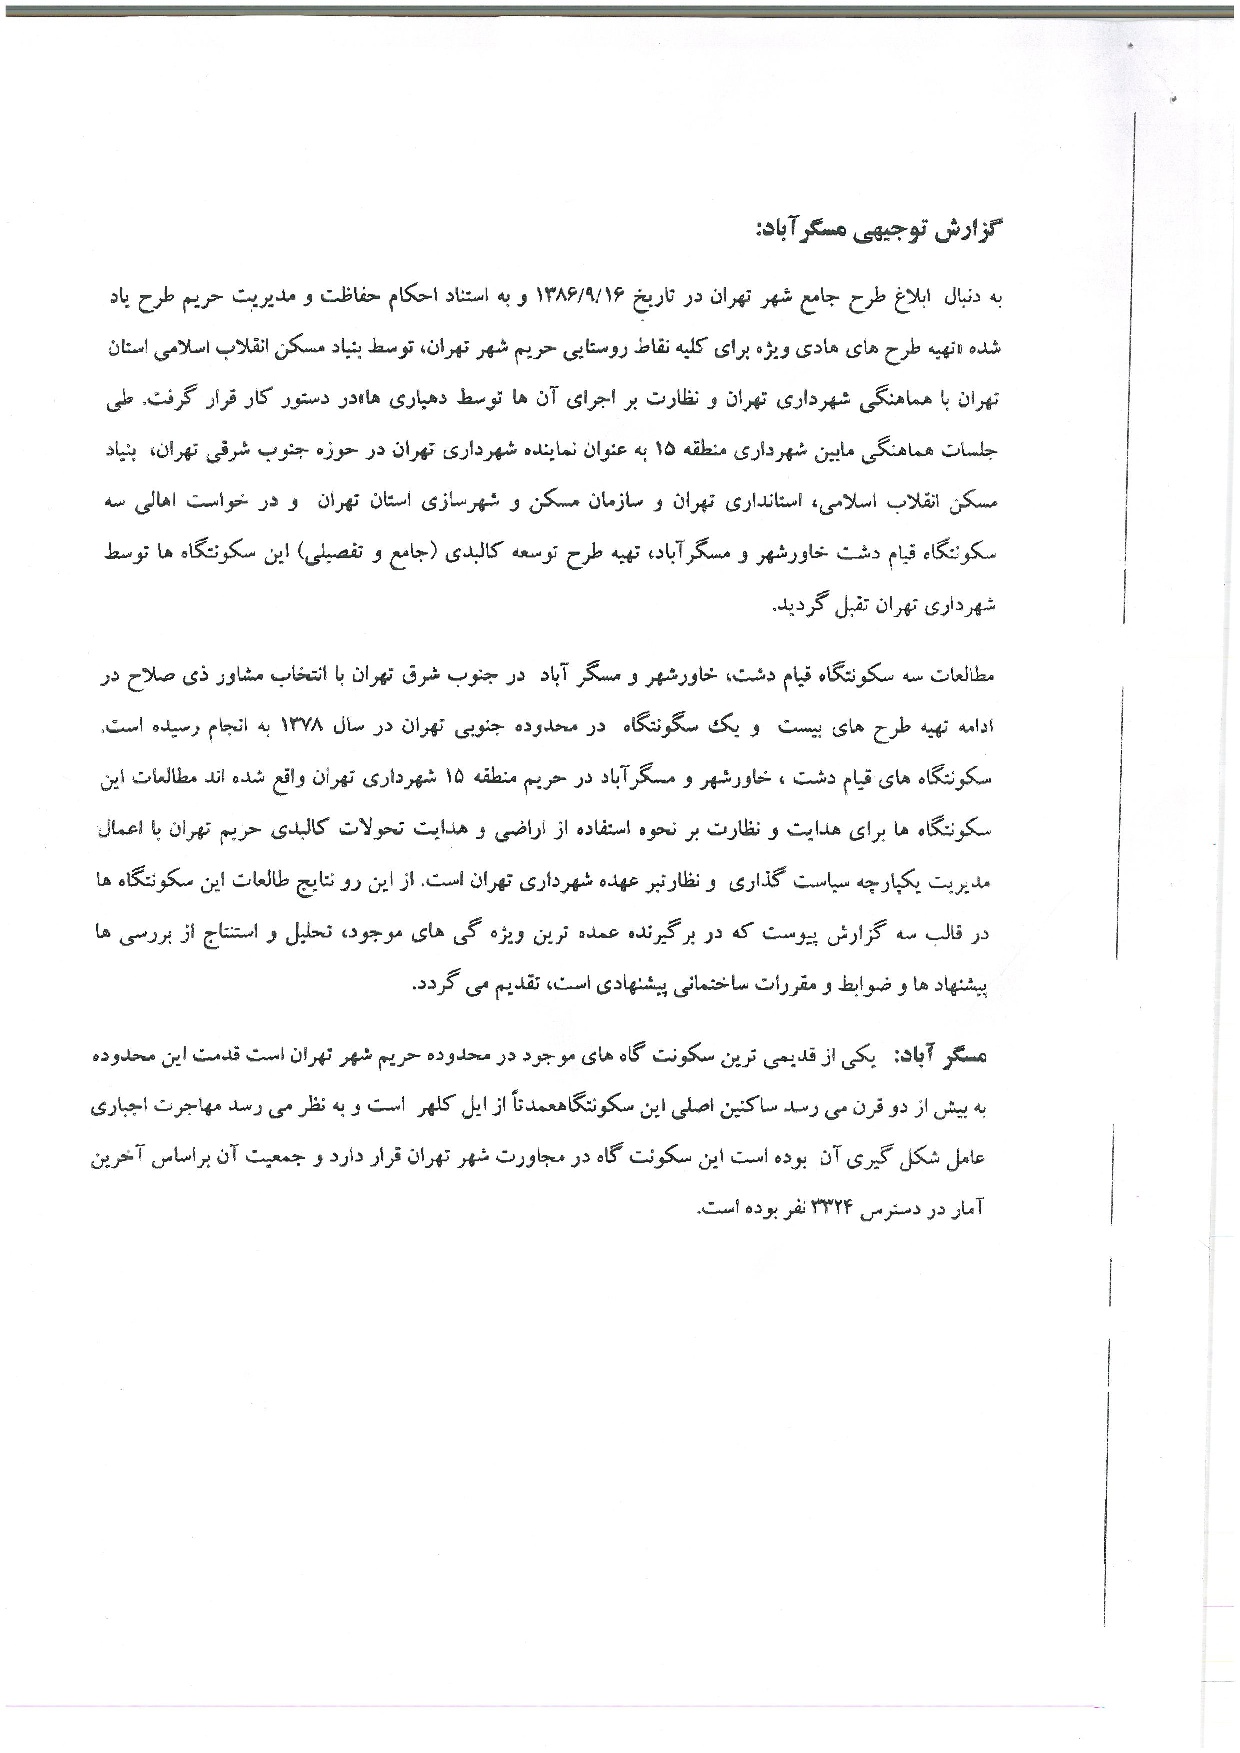 گزارش توجیهی مسگرآباد:
به دنبال ابلاغ طرح جامع شهر تهران در تاریخ ۱۳۸۶/۹/۱۶ و به استناد احکام حفاظت و مدیریت حریم طرح یاد
شده «تهیه طرح های هادی ویژه برای کلیه نقاط روستایی حریم شهر تهران، توسط بنیاد مسکن انقلاب اسلامی استان
تهران با هماهنگی شهرداری تهران و نظارت بر اجرای آن ها توسط دهیاری ها»در دستور کار قرار گرفت. طی
جلسات هماهنگی مابین شهرداری منطقه ۱۵ به عنوان نماینده شهرداری تهران در حوزه جنوب شرقی تهران، بنیاد
مسکن انقلاب اسلامی، استانداری تهران و سازمان مسکن و شهرسازی استان تهران و در خواست اهالی سه
سکونتگاه قیام دشت خاورشهر و مسگرآباد، تهیه طرح توسعه کالبدی (جامع و تفصیلی) این سکونتگاه ها توسط
شهرداری تهران تقبل گردید.
مطالعات سه سکونتگاه قیام دشت، خاورشهر و مسگر آباد در جنوب شرق تهران با انتخاب مشاور ذی صلاح در
ادامه تهیه طرح های بیست و یک سگونتگاه در محدوده جنوبی تهران در سال ۱۳۷۸ به انجام رسیده است.
سکونتگاه های قیام دشت ، خاورشهر و مسگرآباد در حریم منطقه ۱۵ شهرداری تهران واقع شده اند مطالعات این
سکونتگاه ها برای هدایت و نظارت بر نحوه استفاده از اراضی و هدایت تحولات کالبدی حریم تهران با اعمال
مدیریت یکپارچه سیاست گذاری و نظارتبر عهده شهرداری تهران است. از این رو نتایج طالعات این سکونتگاه ها
در قالب سه گزارش پیوست که در برگیرنده عمده ترین ویژه گی های موجود، تحلیل و استنتاج از بررسی ها
پیشنهاد ها و ضوابط و مقررات ساختمانی پیشنهادی است، تقدیم می گردد.
مسگر آباد: یکی از قدیمی ترین سکونت گاه های موجود در محدوده حریم شهر تهران است قدمت این محدوده
به بیش از دو قرن می رسد ساکنین اصلی این سکونتگاهعمدتاً از ایل کلهر است و به نظر می رسد مهاجرت اجباری
عامل شکل گیری آن بوده است این سکونت گاه در مجاورت شهر تهران قرار دارد و جمعیت آن براساس آخرین
آمار در دسترس ۳۳۲۴ نفر بوده است.